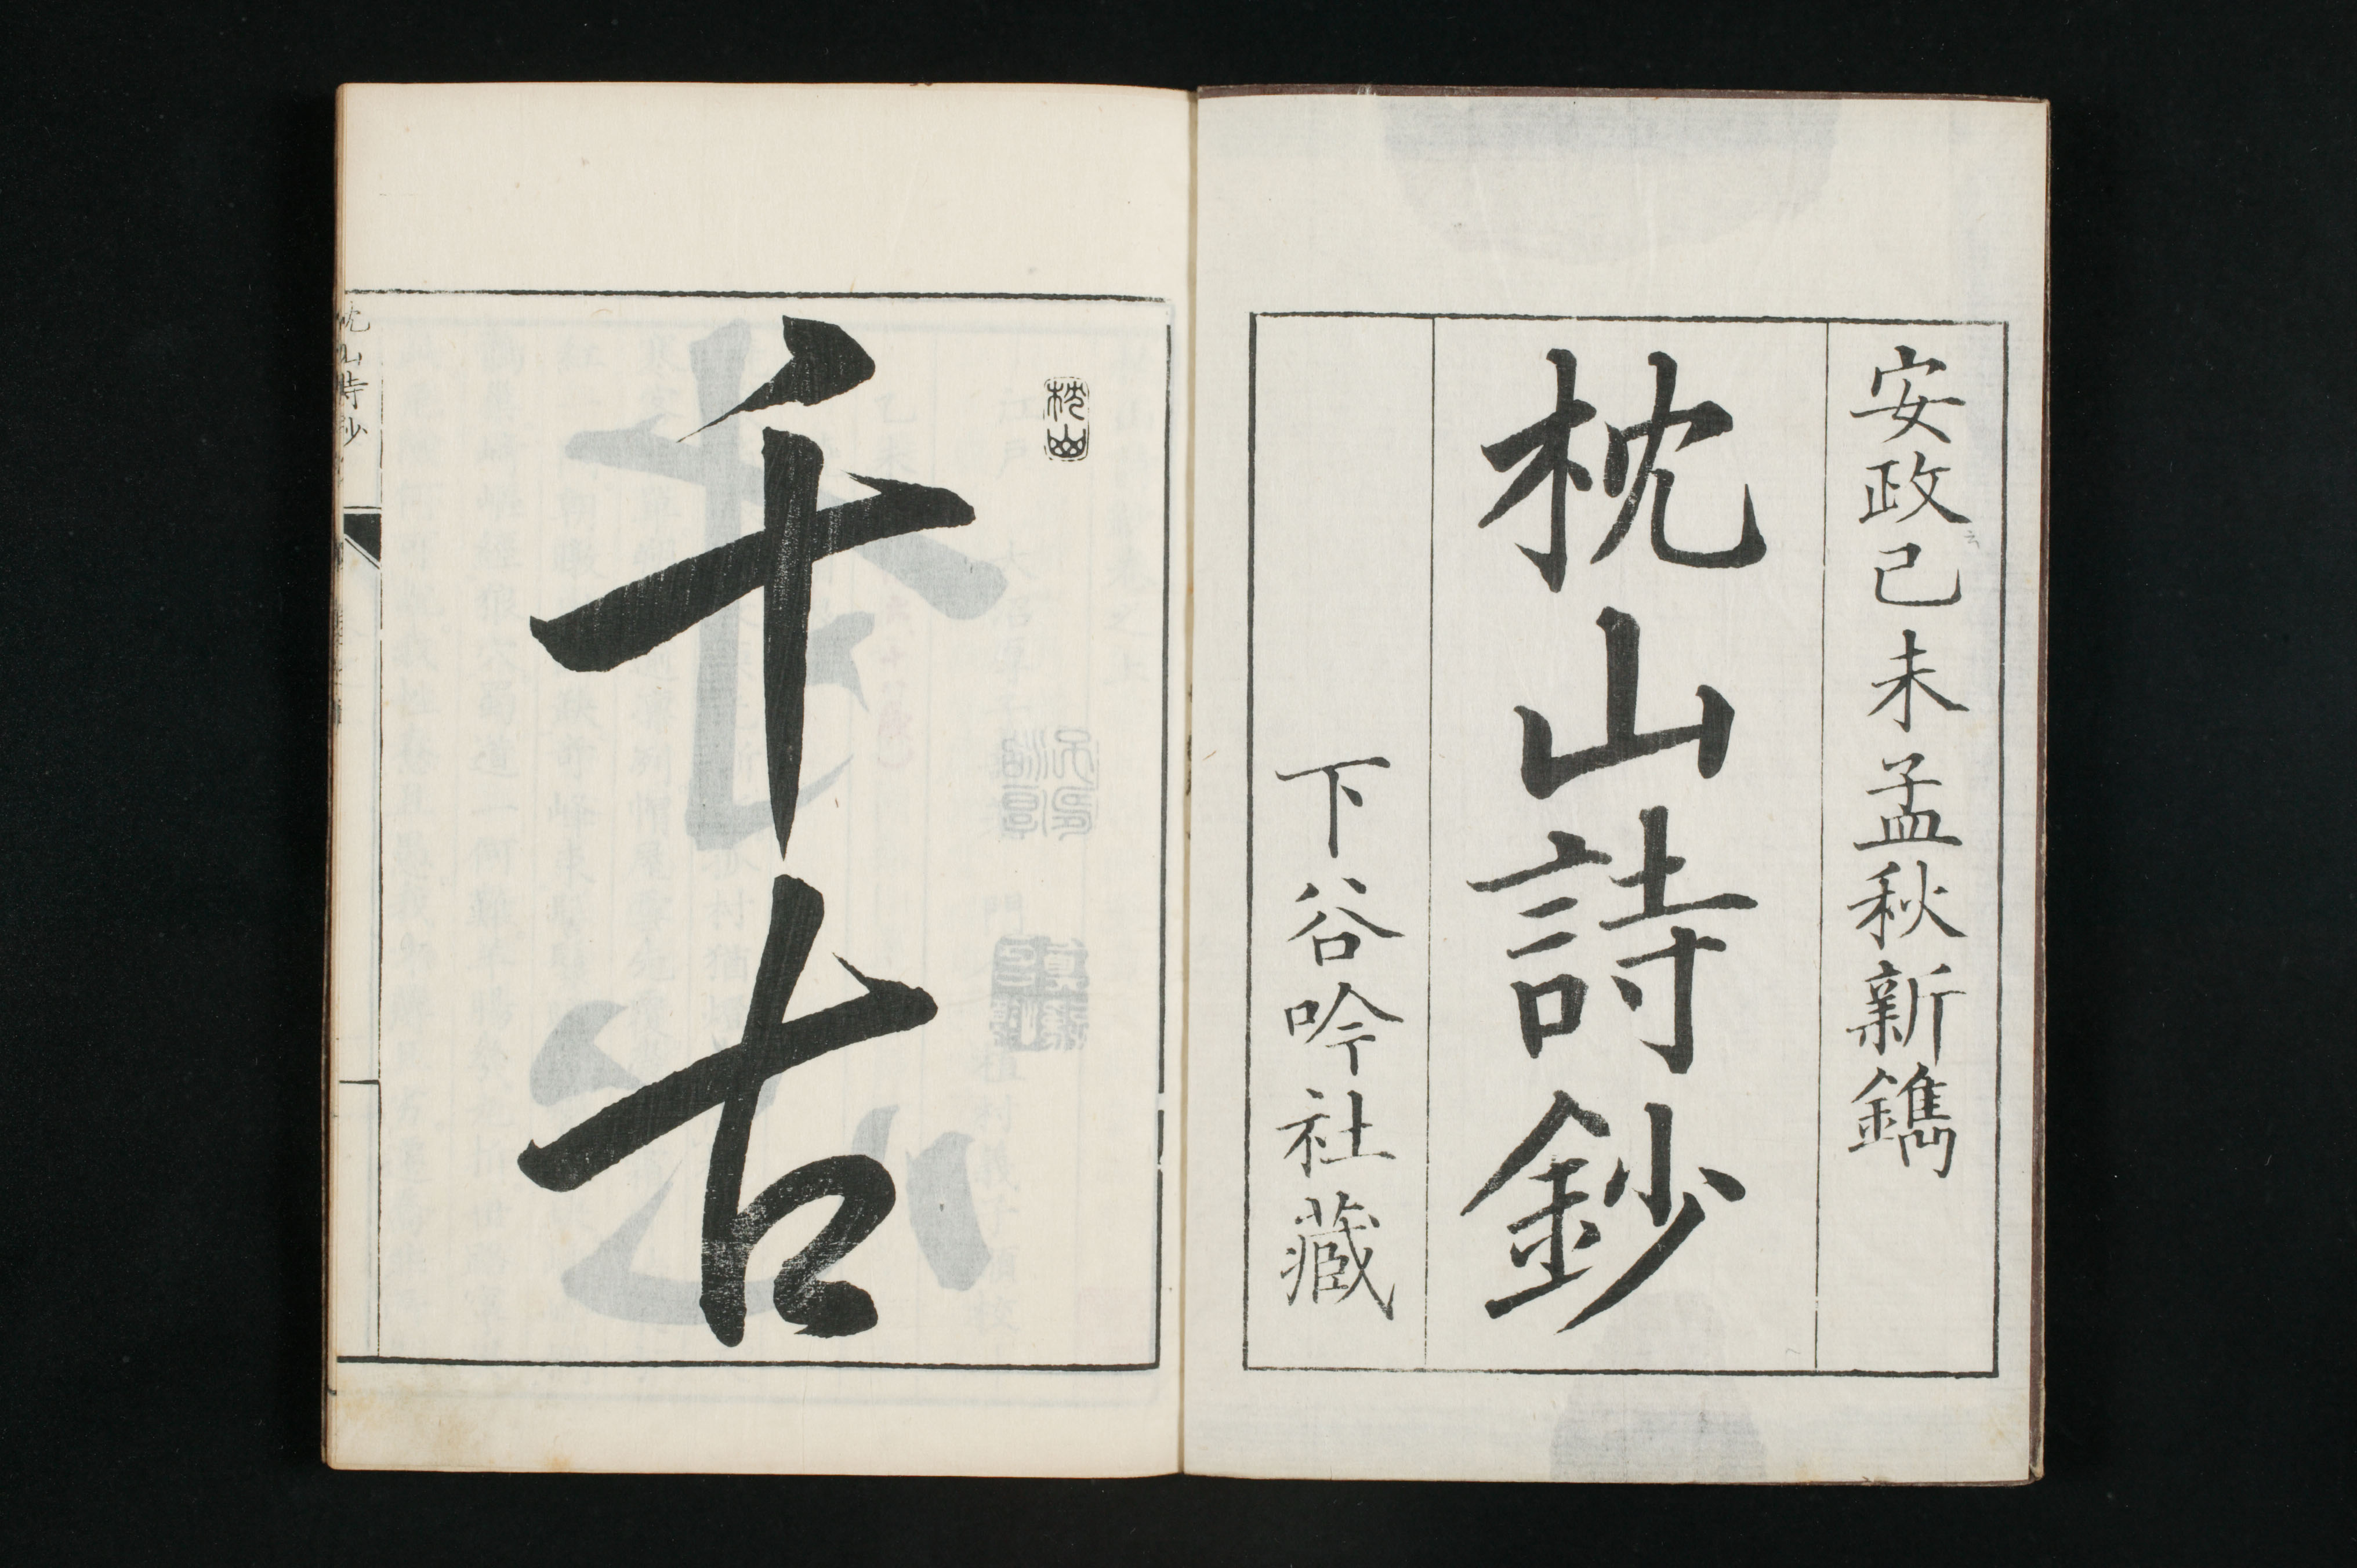 安政己未孟秋新鐫
枕山詩鈔
下谷吟社藏
枕山
千古
枕山詩鈔